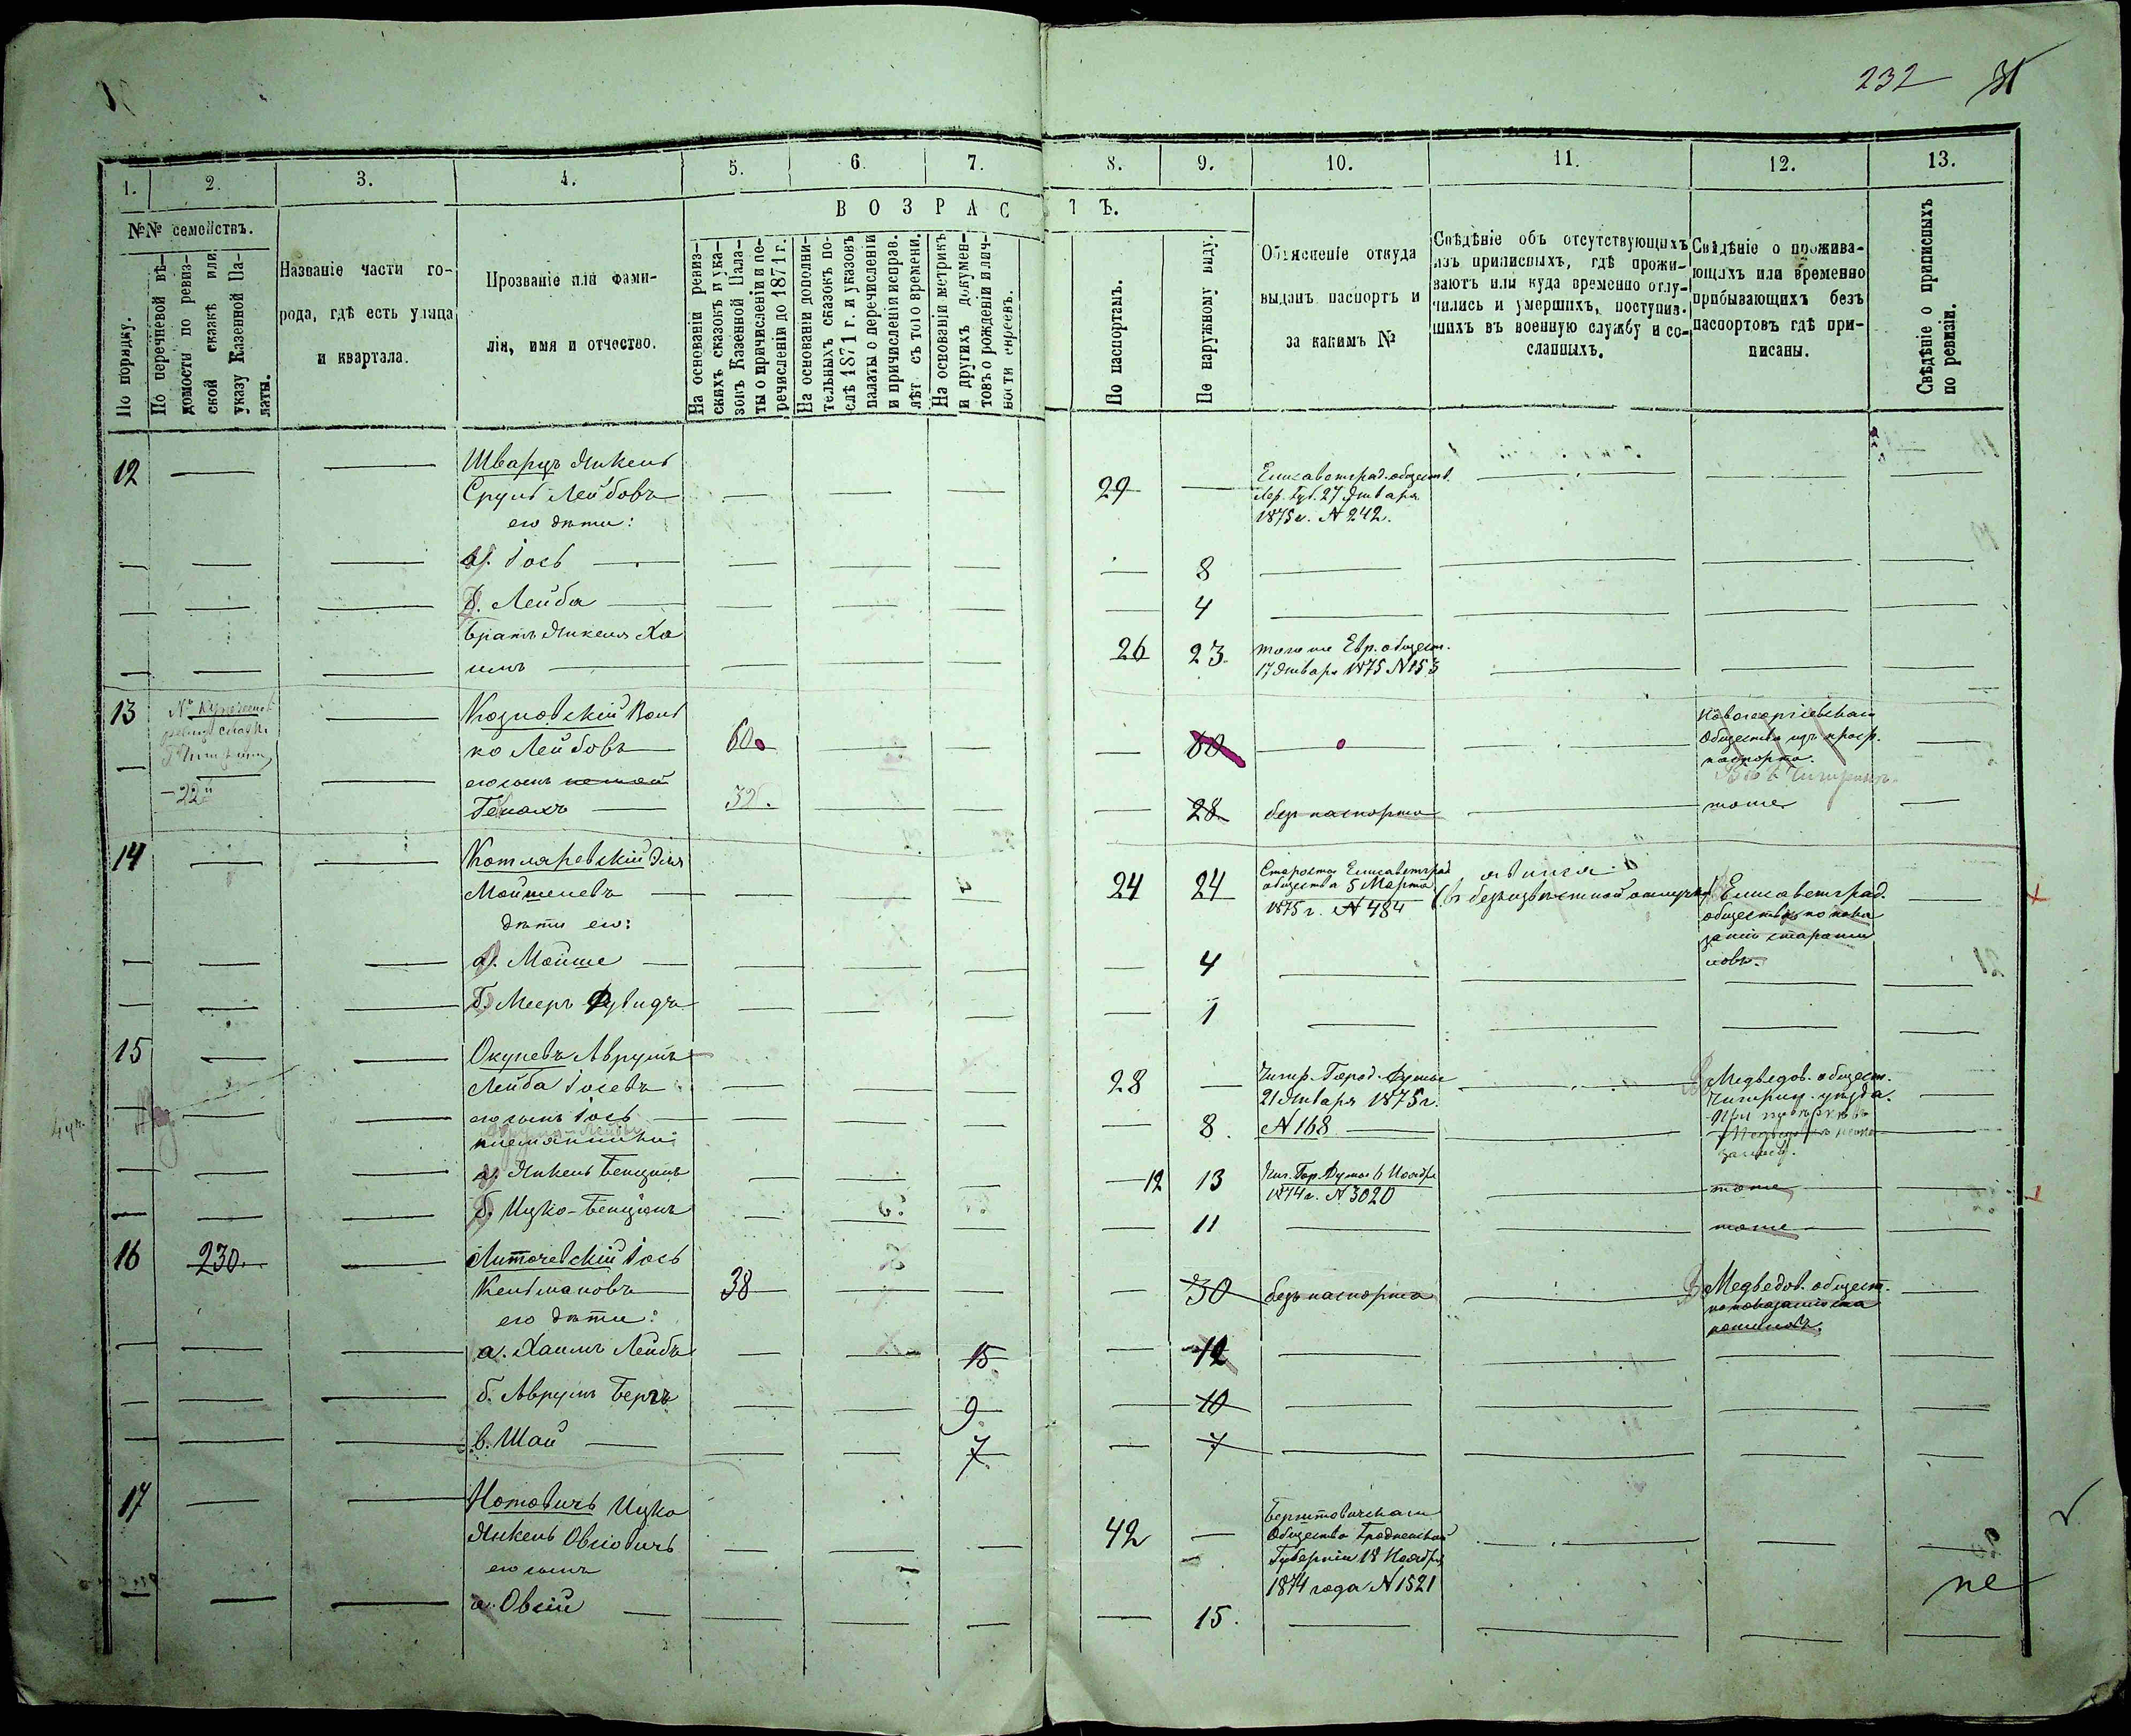 232
1. 2. 3. 4. 5. 6. 7. 8. 9. 10. 11. 12. 13.
№№ семействъ.
По порядку.
По перечневой вѣ-
домости по ревиз-
ской сказкѣ или
указу Казенной Па-
латы.
Названіе части го-
рода, гдѣ есть улица
и квартала.
Прозваніе или фами-
лія, имя и отчество.
ВОЗРАСТЪ.
На основаніи ревиз-
скихъ сказокъ и ука-
зовъ Казенной Пала-
ты о причисленіи и пе-
речисленіи до 1871 г.
На основаніи дополни-
тельныхъ сказокъ по-
слѣ 1871 г. и указовъ
палаты о перечисленіи
и причисленіи исправ.
лѣт съ того времени.
На основаніи метрикъ
и другихъ докумен-
товъ о рожденіи и лич-
ности евреевъ.
По паспортамъ.
По наружному виду.
Объясненіе откуда
выданъ паспортъ и
за какимъ №
Свѣдѣніе объ отсутствующихъ
изъ приписныхъ, гдѣ прожи-
ваютъ или куда временно отлу-
чились и умершихъ, поступив-
шихъ въ военную службу и со-
сланныхъ.
Свѣдѣніе о прожива-
ющихъ или временно
прибывающихъ безъ
паспортовъ гдѣ при-
писаны.
Свѣдѣніе о приписныхъ
по ревизіи.
12 Шварцъ Янкель
Сруль Лейбовъ 29
Елисаветград. обществ.
Хер. Губ. 27 Января
1875 г. № 242.
его дѣти:
а. Іось 8
б. Лейба 4
братъ Янкеля Ха
имъ 26 23
тогоже Евр. общест.
17 Января 1875 № 153
13 Козловскій Воль
ко Лейбовъ 60 60
Новогеоргіевскаго
Общества
паспорта.
22
его сынъ
Генахъ 32. 28 без паспорта тоже
14 Котляревскій Эля
Мошелевъ 24 24
Староста Елисаветград
общества 5 Марта
1875 г. № 484
въ безизвѣстной отлучкѣ
Елисаветград.
общества по пока
занію старшин
новъ.
дѣти его:
а. Мойше 4
б. Мееръ Дувидъ 1
15 Окуневъ Аврумъ
Лейба Іосевъ 28
Чигир. Город. Думы
21 Января 1875 г.
№ 168
Медведов. общест.
Чигирин. уѣзда.
его сынъ Іось 8.
племянники:
а. Янкель Бенціонъ 12 13
Чиг. Гор. Думы 6 Ноября
1874 г. № 3020
тоже
б. Ицко-Бенціонъ 11 тоже
16 230 Литочевскій Іось
Кельмановъ 38 30 безъ паспорта
Медведов. общест.
по показанію ста
его дѣти:
а. Хаимъ Лейбъ 15 12
б. Аврумъ Беръ 9 10
в. Шая 7 7
17 Нотовичъ Ицко
Янкель Овсіовичъ 42
Общества Гродненской
Губерніи 18 Ноября
1874 года № 1521
его сынъ
а. Овсій 15.
не